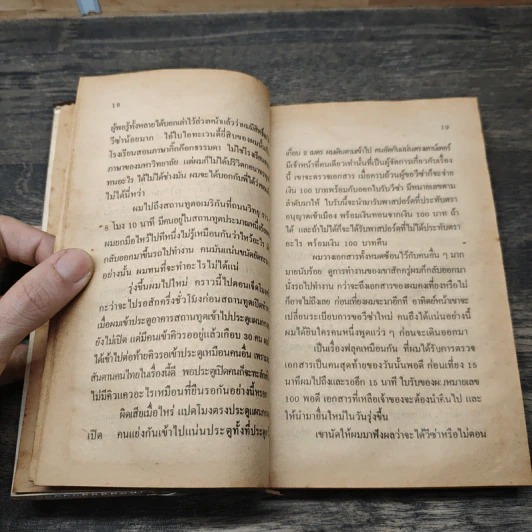 18
ผู้พอรู้ทั้งหลายได้บอกเล่าไว้ล่วงหน้าแล้วว่าคนมีสิทธิ์
วีซ่าน้อยมาก ใช้ใบไอทะเวนตี้ยี่สิบของผม
โรงเรียนสอนภาษาก๊อกธรรมดา ไม่ใช่โรงเรียน
ภาษาของมหาวิทยาลัย แต่ผมก็ไม่ได้ปริวิตก
ทนอะไร ได้ไม่ได้ช่างมัน ผมจะได้บอกกับพี่ได้ว่า
ไม่ได้นี่หว่า
ผมไปถึงสถานทูตอเมริกันที่ถนนวิทยุ
8 โมง 10 นาที มีคนอยู่ในสถานทูตประมาณหนึ่ง
ผมยกมือไหว้ไปทีหนึ่งไม่รู้เหมือนกันว่าไหว้อะไร
กลับออกมาขึ้นรถไปทำงาน คนมันแน่นขนัดยัด
อย่างนั้น ผมทนที่จะทำอะไรไม่ได้แน่
รุ่งขึ้นผมไปใหม่ คราวนี้ไปตอนเจ็ดโมง
กะว่าจะไปรอสักครึ่งชั่วโมงก่อนสถานทูตเปิด
เมื่อผมเข้าประตูอาคารสถานทูตเข้าไปประตูแผนก
ยังไม่เปิด แต่มีคนเข้าคิวรออยู่แล้วเกือบ 30 คน
ได้เข้าไปต่อท้ายคิวรอเข้าประตูเหมือนคนอื่น เพราะ
สันดานคนไทยในเรื่องนี้ดี พอประตูเปิดก็จะ
ไม่มีคิวแควอะไรเหมือนที่ยืนรอกันอย่างนี้หรอก
ผิดเสียเมื่อไหร่ แปดโมงตรงประตูแผนก
เปิด คนแย่งกันเข้าไปแน่นประตูทั้งที่ประตู
19
เกือบ 2 เมตร ผมเดินตามเข้าไป คนอัดกันแน่นตรงเคาน์เตอร์
มีเจ้าหน้าที่คนเดียวเท่านั้นที่เป็นผู้จัดการเกี่ยวกับเรื่อง
นี้ เขาจะตรวจเอกสาร เมื่อครบถ้วนผู้ขอวีซ่าก็จะจ่าย
เงิน 100 บาทพร้อมกับออกใบรับวีซ่า มีหมายเลขตาม
ลำดับมาให้ ใบรับนี้จะนำมารับพาสปอร์ตที่ประทับตรา
อนุญาตเข้าเมือง พร้อมเงินทอนจากเงิน 100 บาท ถ้า
ได้ และถ้าไม่ได้ก็จะได้รับพาสปอร์ตที่ไม่ได้ประทับตรา
อะไร พร้อมเงิน 100 บาทคืน
ผมวางเอกสารทั้งหมดซ้อนไว้กับคนอื่น ๆ มาก
มายนับร้อย ดูการทำงานของเขาสักครู่ผมก็กลับออกมา
นั่งรถไปทำงาน กว่าจะถึงเอกสารของผมคงเที่ยงหรือไม่
ก็อาจไม่ถึงเลย ก่อนเที่ยงจะมาอีกที อาทิตย์หน้าเขาจะ
เปลี่ยนระเบียบการขอวีซ่าใหม่ คนถึงได้แน่นอย่างนี้
ผมได้ยินใครคนหนึ่งพูดแว่ว ๆ ก่อนจะเดินออกมา
เป็นเรื่องฟลุคเหมือนกัน ที่ผมได้รับการตรวจ
เอกสารเป็นคนสุดท้ายของวันนั้นพอดี ก่อนเที่ยง 15
นาทีผมไปถึงและรออีก 15 นาที ใบรับของผมหมายเลข
100 พอดี เอกสารที่เหลือเจ้าของจะต้องนำคืนไป และ
ให้นำมายื่นใหม่ในวันรุ่งขึ้น
เขานัดให้ผมมาฟังผลว่าจะได้วีซ่าหรือไม่ตอน